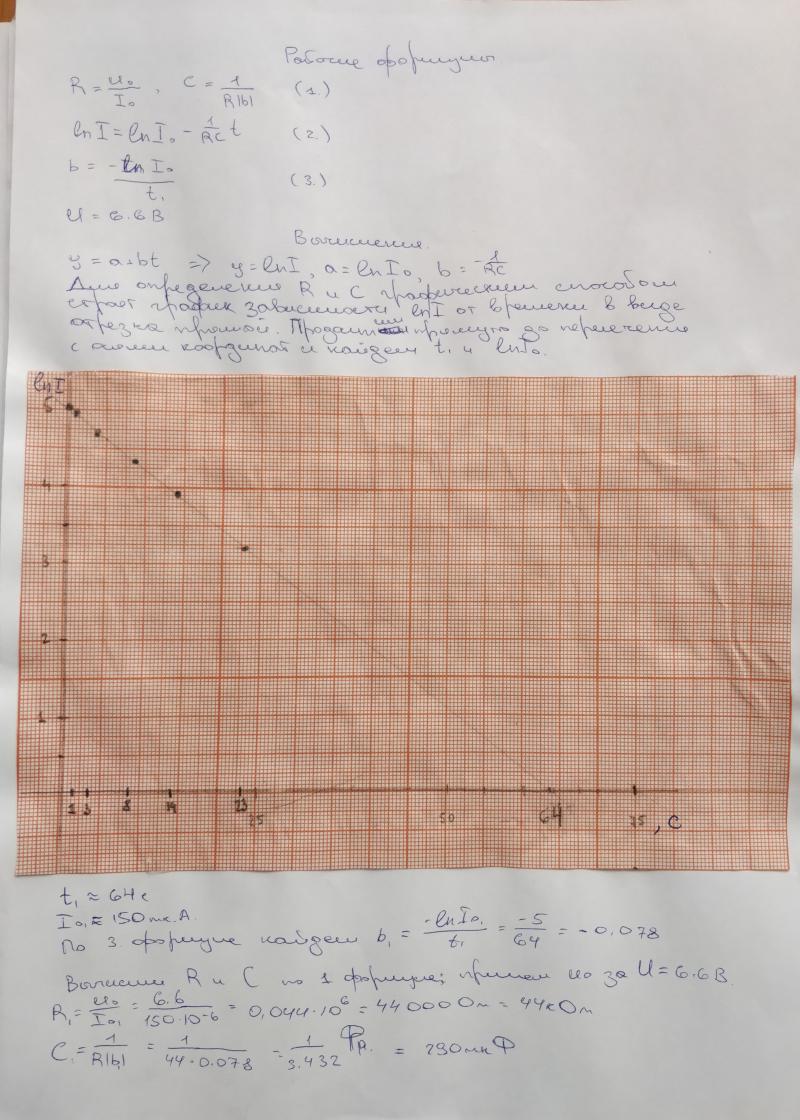 Рабочие формулы
R = U₀/I₀ , C = 1/R|b| (1.)
ln I = ln I₀ - 1/RC t (2.)
b = -ln I₀/t₁ (3.)
U = 6.6 В
Вычисления.
y = a+bt => y = ln I, a = ln I₀, b = -1/RC
Для определения R и C графическим способом
строят график зависимости ln I от времени в виде
отрезка прямой. Продлим прямую до пересечения
с осями координат и найдем t₁ и ln I₀.
ln I
5
4
3
2
1
1 3 8 14 23 25 50 64 75 , с
t₁ ≈ 64 с
I₀₁ ≈ 150 мк.А.
По 3. формуле найдем b₁ = -ln I₀₁/t₁ = -5/64 = -0,078
Вычислим R и C по 1 формуле; примем u₀ за U = 6.6 В.
R₁ = U₀/I₀₁ = 6.6/150·10⁻⁶ = 0,044·10⁶ = 44000 Ом = 44 кОм
C₁ = 1/R|b₁| = 1/44·0.078 = 1/3.432 Ф = 290 мкФ